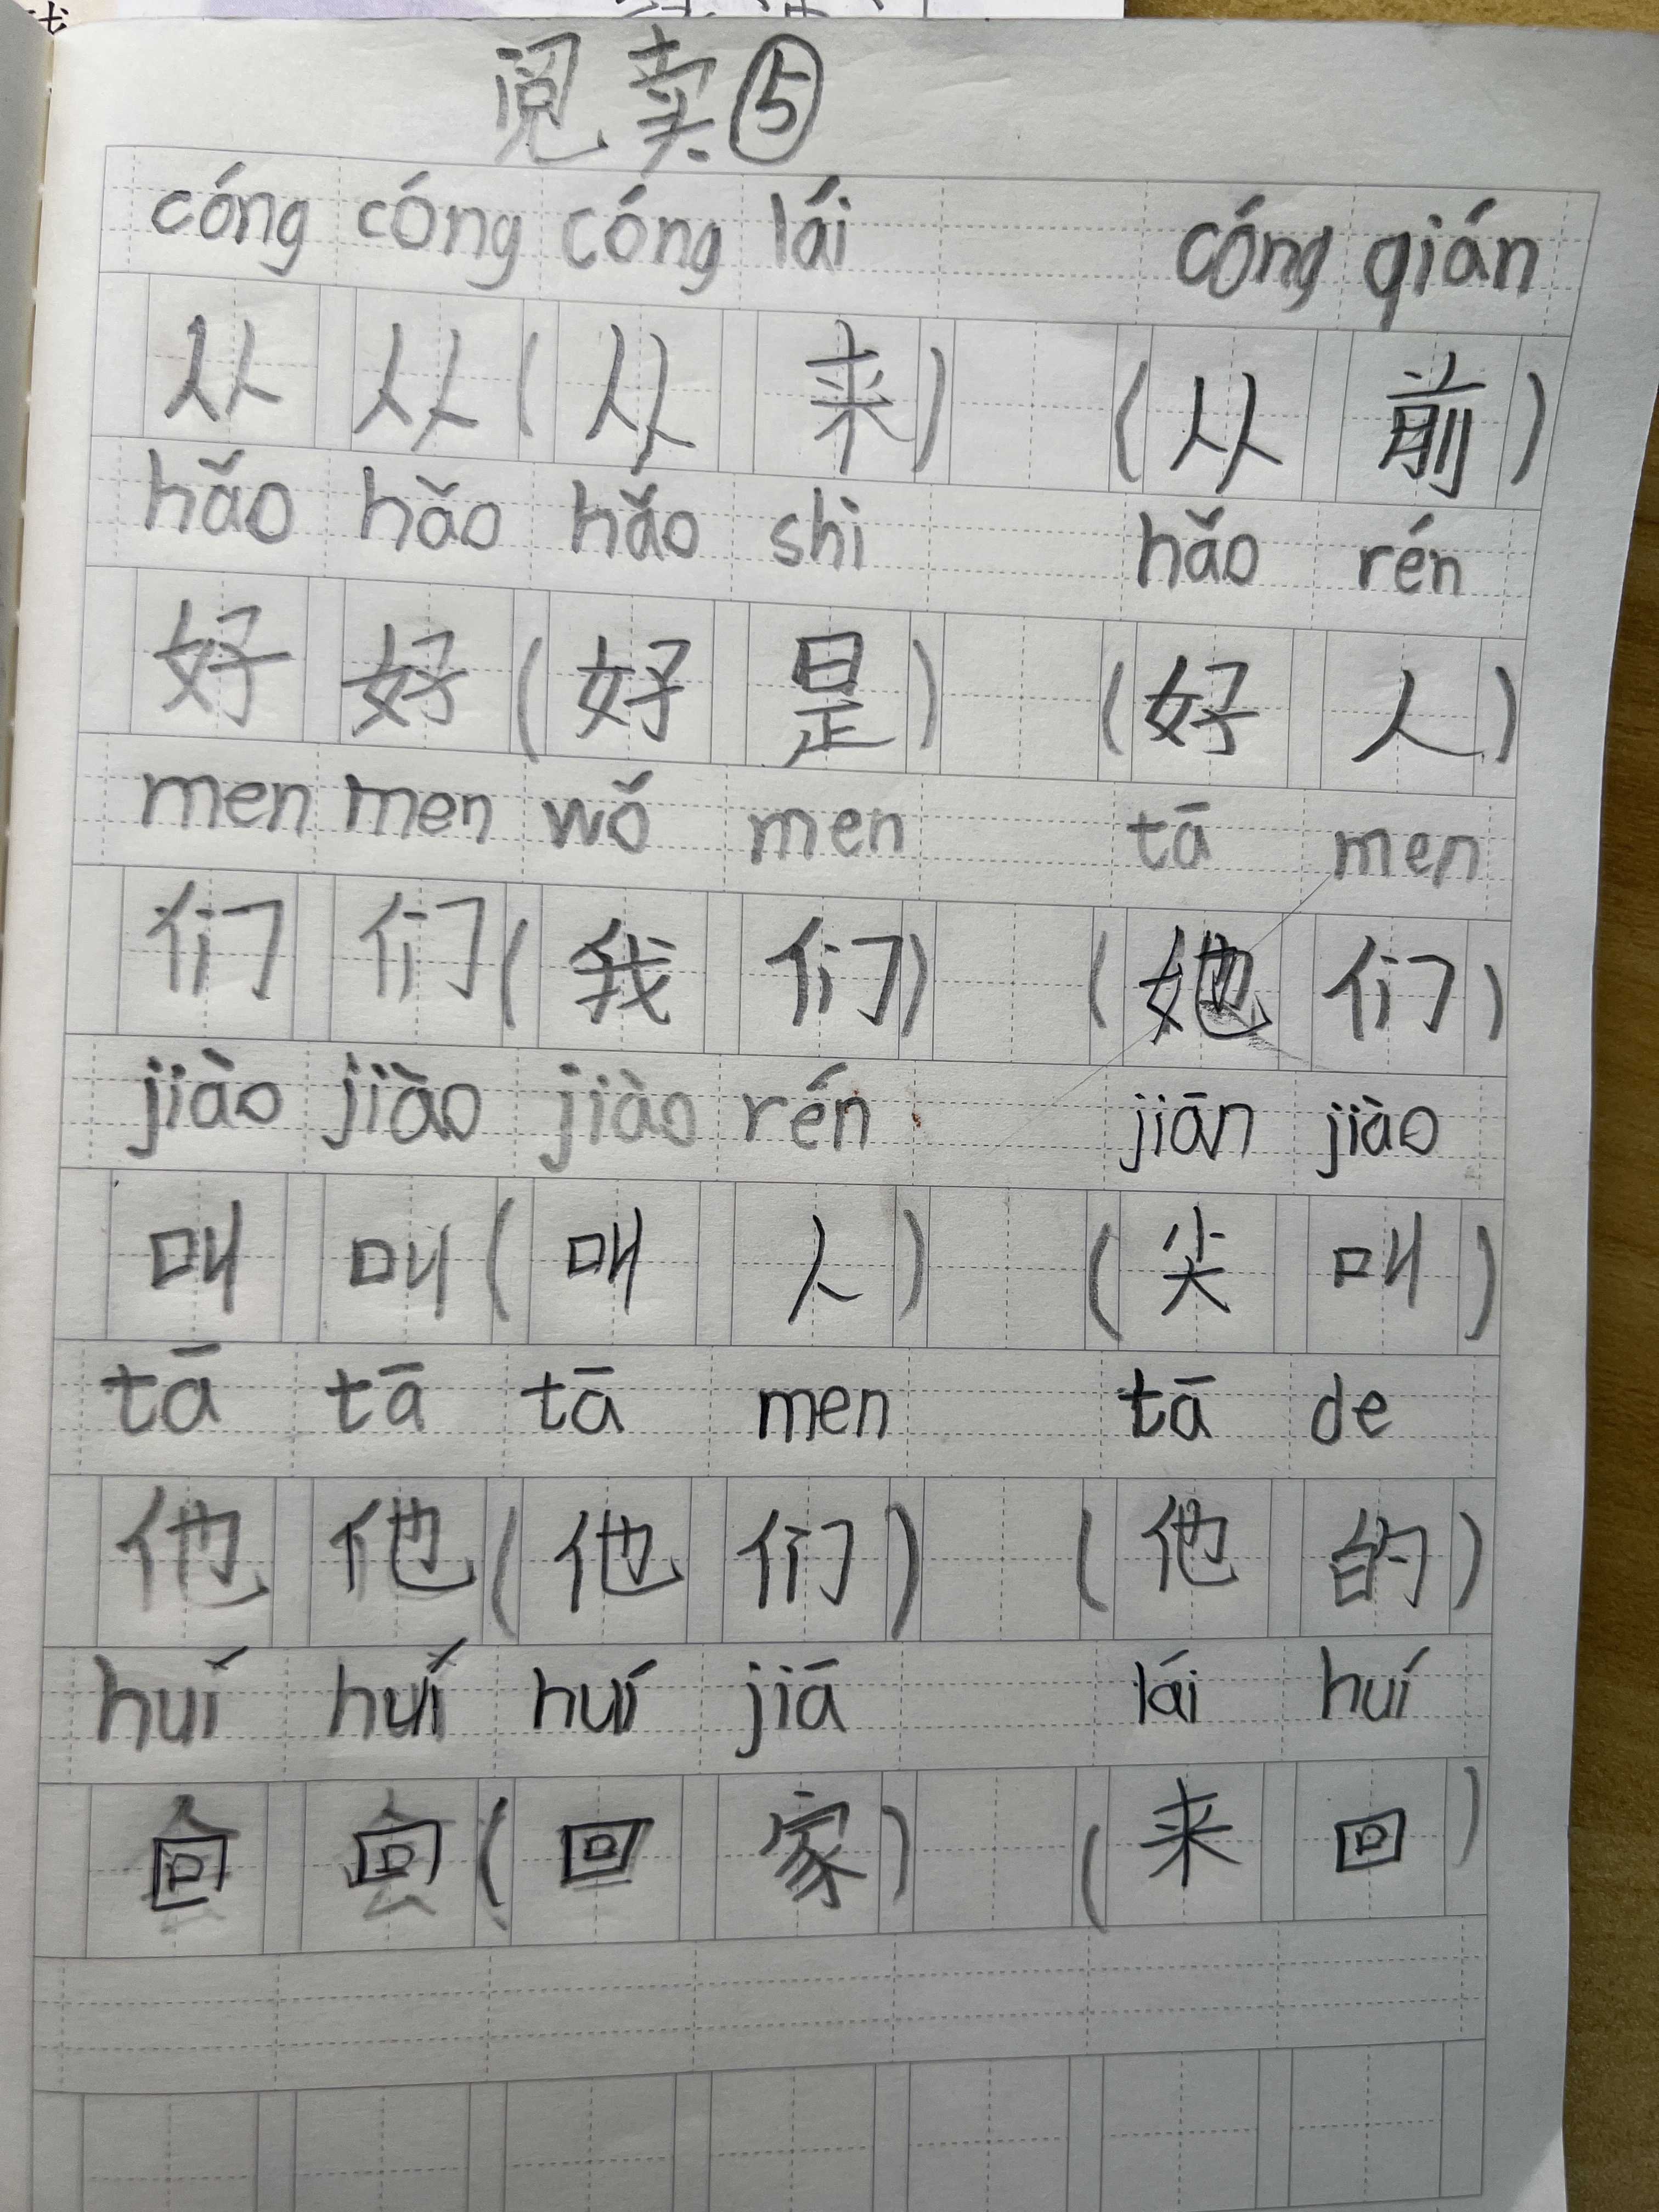 阅卖⑤
cóng cóng cóng lái cóng qián
从 从 (从 来) (从 前)
hǎo hǎo hǎo shi hǎo rén
好 好 (好 是) (好 人)
men men wǒ men tā men
们 们 (我 们) (她 们)
jiào jiào jiào rén jiān jiào
叫 叫 (叫 人) (尖 叫)
tā tā tā men tā de
他 他 (他 们) (他 的)
huí huí huí jiá lái huí
回 回 (回 家) (来 回)